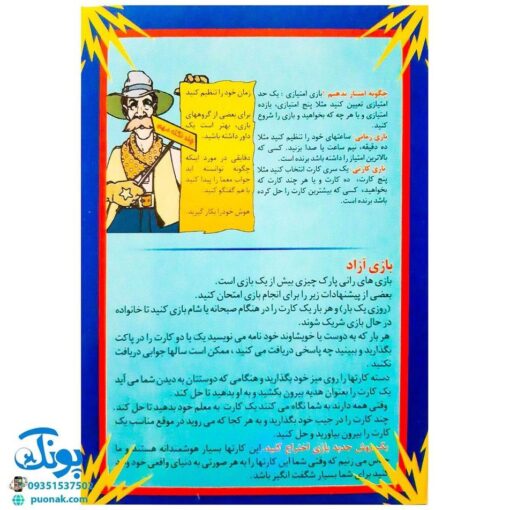 چگونه امتیاز بدهیم: بازی امتیازی: یک حد
امتیازی تعیین کنید مثلا پنج امتیازی، یازده
امتیازی و یا هر چه که بخواهید و بازی را شروع
کنید
بازی زمانی: ساعتهای خود را تنظیم کنید مثلا
ده دقیقه، نیم ساعت یا صدا بزنید. کسی که
بالاترین امتیاز را داشته باشد برنده است.
بازی کارتی: یک سری کارت انتخاب کنید مثلا
پنج کارت، ده کارت و یا هر چند کارت که
بخواهید، کسی که بیشترین کارت را حل کرده
باشد برنده است.
چند نکته مهم
زمان خود را تنظیم کنید
برای بعضی از گروههای
بازی، بهتر است یک
داور داشته باشید.
دقایقی در مورد اینکه
چگونه توانسته اید
جواب معما را پیدا کنید
با هم گفتگو کنید.
هوش خودرا بکار گیرید.
بازی آزاد
بازی های رانی پارک چیزی بیش از یک بازی است.
بعضی از پیشنهادات زیر را برای انجام بازی امتحان کنید.
(روزی یک بار) و هر بار یک کارت را در هنگام صبحانه یا شام بازی کنید تا خانواده
در حال بازی شریک شوند.
هر بار که به دوست یا خویشاوند خود نامه می نویسید یک یا دو کارت را در پاکت
بگذارید و ببینید چه پاسخی دریافت می کنید، ممکن است سالها جوابی دریافت
نکنید.
دسته کارتها را روی میز خود بگذارید و هنگامی که دوستتان به دیدن شما می آید
یک کارت را بعنوان هدیه بیرون بکشید و به او بدهید تا حل کند
وقتی همه دارند به شما نگاه می کنند یک کارت به معلم خود بدهید تا حل کند.
چند کارت را در جیب خود بگذارید و به هر کجا که می روید در موقع مناسب یک
کارت را بیرون بیاورید و حل کنید.
یک روش جدید بازی اختراع کنید. این کارتها بسیار هوشمندانه هستند و ما
حدس می زنیم که وقتی شما این کارتها را به هر صورتی به دنیای واقعی خود وارد
کنید برای شما بسیار شگفت انگیز باشد.
پونک
09351537503
puonak.com